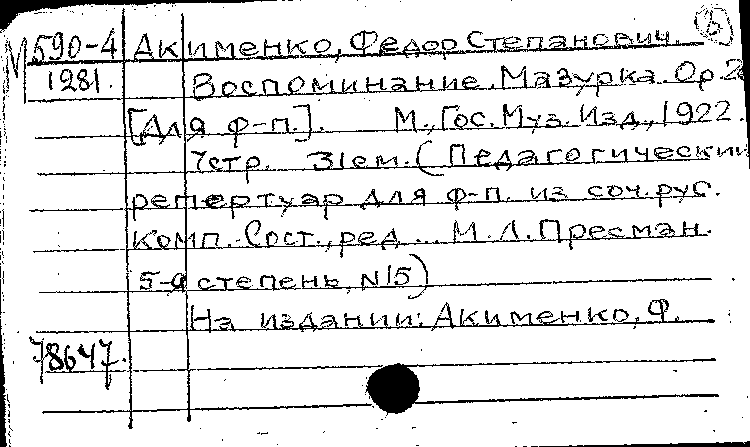 М 590-4 Акименко, Федор Степанович. (б)
1281. Воспоминание. Мазурка. Ор. 2
[Для ф-п.]. М., Гос. Муз. Изд., 1922.
7стр. 31см. (Педагогический
репертуар для ф-п. из соч. рус.
комп.-Сост., ред ... М. Л. Пресман.
5-я степень, N15)
На издании: Акименко, Ф.
78647.